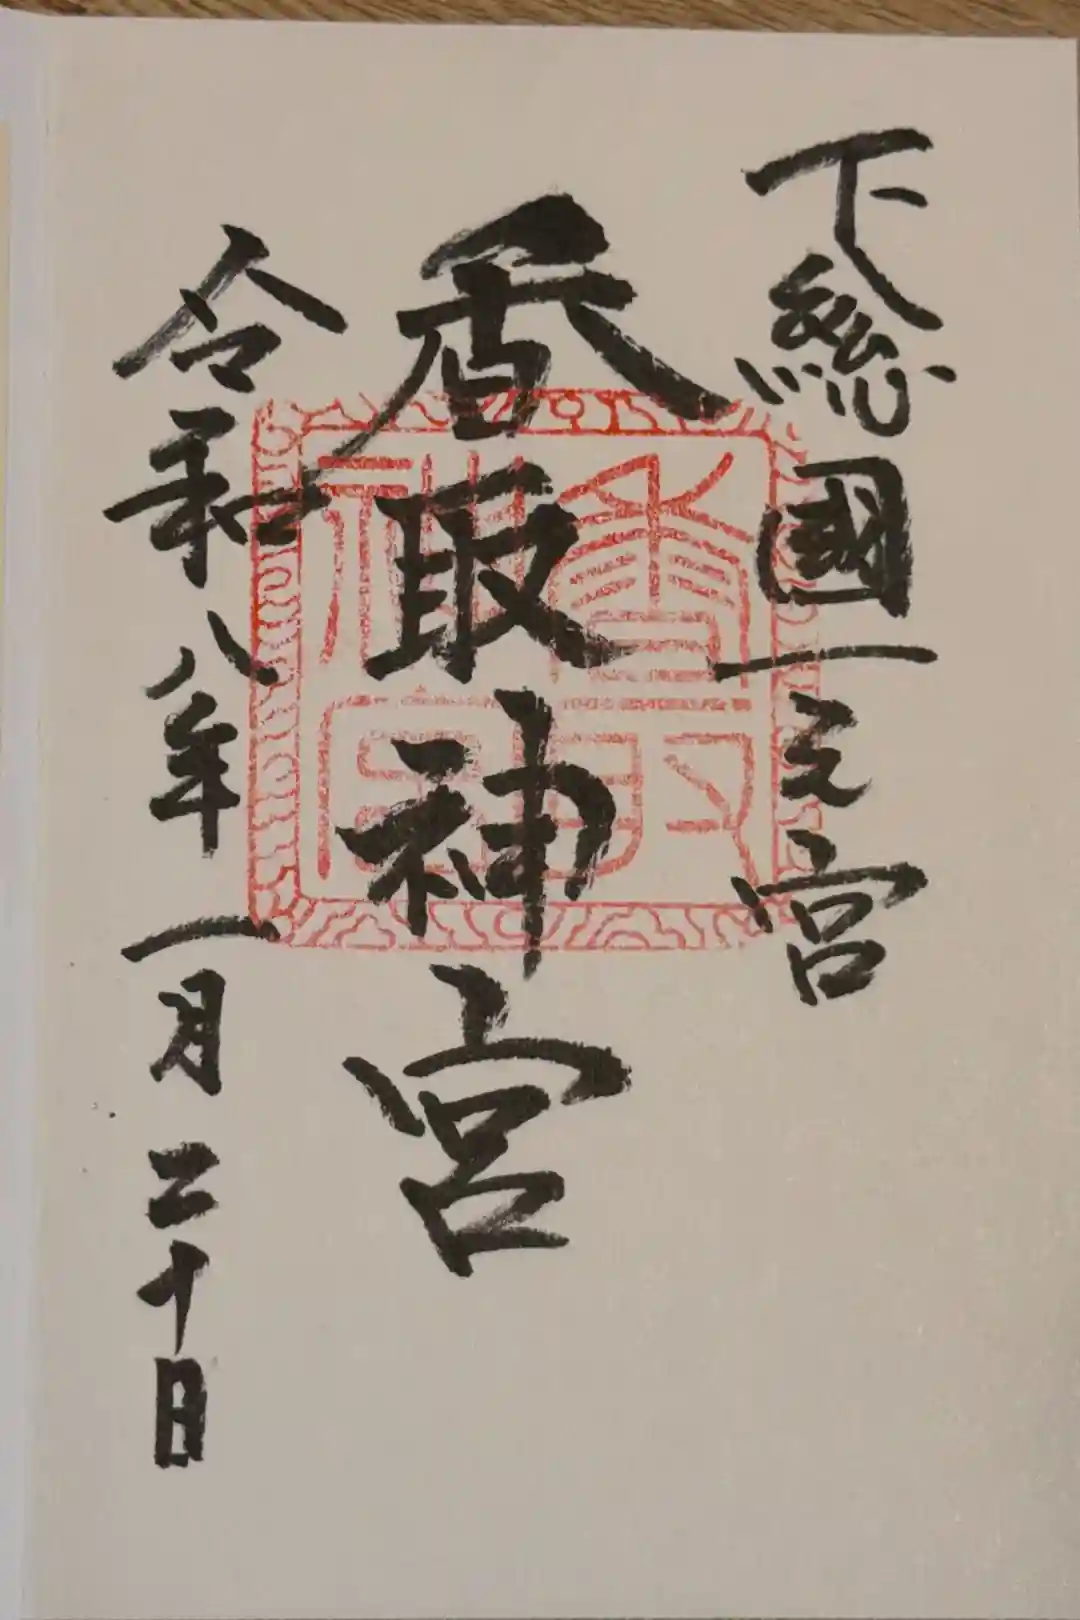 下總國一之宮
香取神宮
令和八年一月二十日
香取神宮